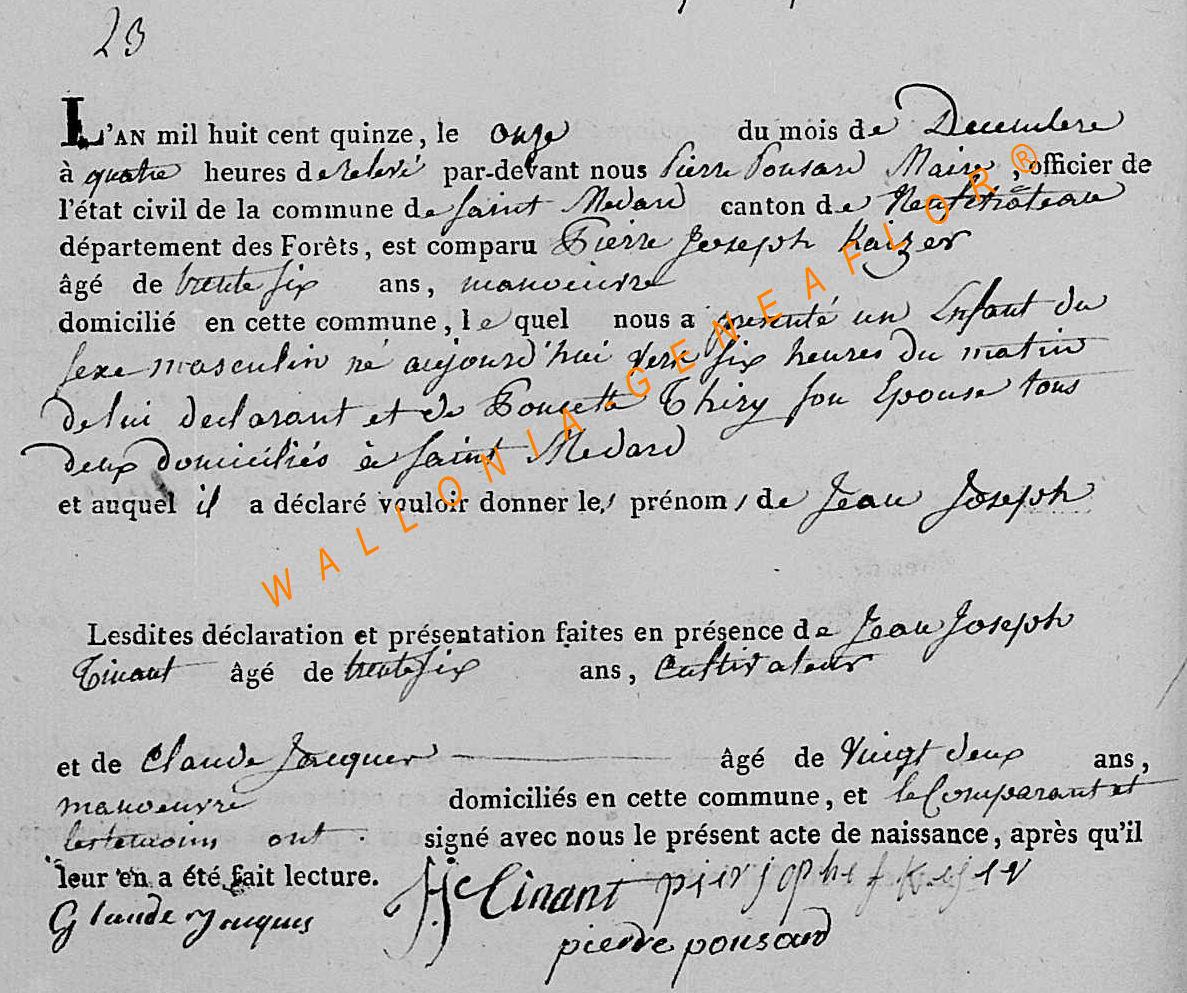 23
L'AN mil huit cent quinze, le onze du mois de Decembre
à quatre heures de relevé par-devant nous Pierre Pousard Maire, officier de
l'état civil de la commune de Saint Medard canton de Neufchâteau
département des Forêts, est comparu Pierre Joseph Kaizer
âgé de trente six ans, manoeuvre
domicilié en cette commune, lequel nous a presenté un Enfant du
sexe masculin né aujourd'hui vers six heures du matin
de lui declarant et de Poncette Thiry son Epouse tous
deux domiciliés à Saint Medard
et auquel il a déclaré vouloir donner les prénoms de Jean Joseph
Lesdites déclaration et présentation faites en présence de Jean Joseph
Tinant âgé de trente six ans, Cultivateur
et de Claude Jacques âgé de Vingt deux ans,
manoeuvre domiciliés en cette commune, et le Comparant et
les temoins ont signé avec nous le présent acte de naissance, après qu'il
leur en a été fait lecture.
Glaude Jaques JJ Tinant
pierre pousard
WALLONIA-GENEAFLOR®